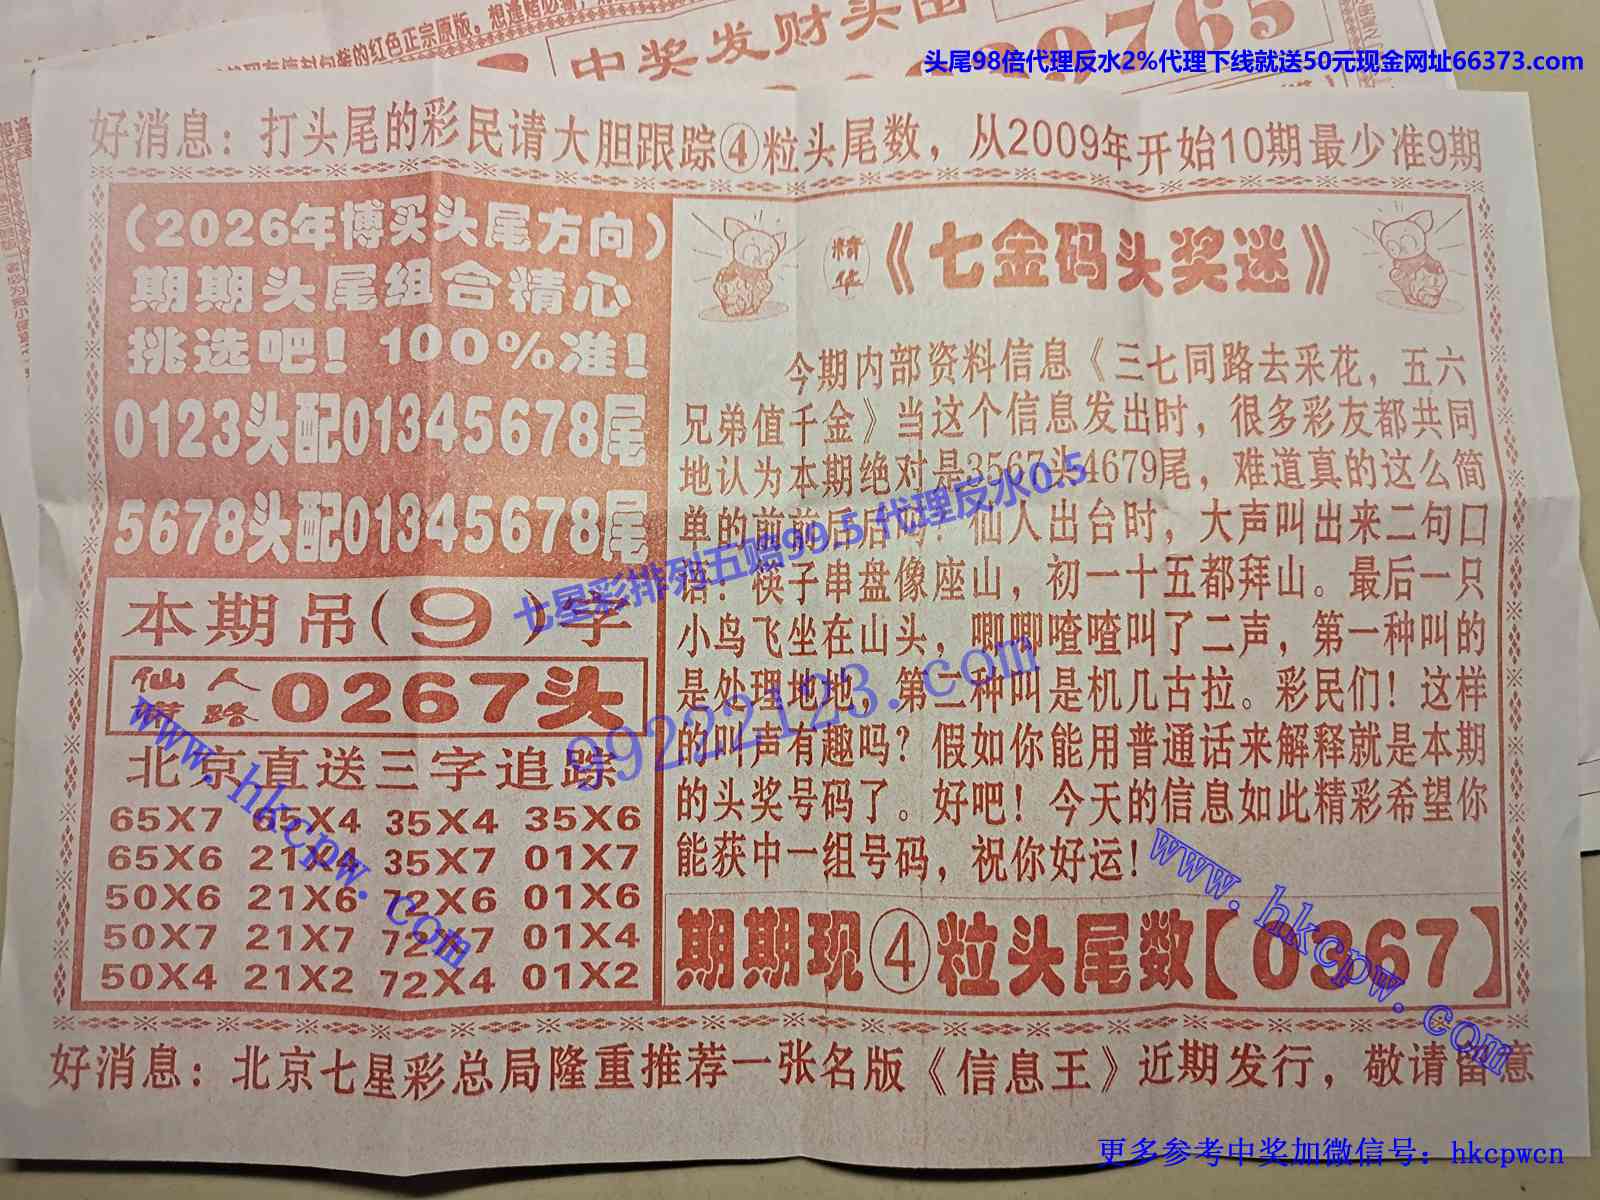 想逢赌必输，
封包装的红色正宗原版。
中奖发财头国
9765
头尾98倍代理反水2%代理下线就送50元现金网址66373.com
好消息：打头尾的彩民请大胆跟踪④粒头尾数，从2009年开始10期最少准9期
（2026年博买头尾方向）
期期头尾组合精心
挑选吧！100%准！
0123头配01345678尾
5678头配01345678尾
本期吊（9）字
仙人
路
0267头
北京直送三字追踪
65X7 65X4 35X4 35X6
65X6 21X4 35X7 01X7
50X6 21X6 72X6 01X6
50X7 21X7 72X7 01X4
50X4 21X2 72X4 01X2
精华
《七金码头奖迷》
今期内部资料信息《三七同路去采花，五六
兄弟值千金》当这个信息发出时，很多彩友都共同
地认为本期绝对是3567头4679尾，难道真的这么简
单的前前后后吗？仙人出台时，大声叫出来二句口
语：筷子串盘像座山，初一十五都拜山。最后一只
小鸟飞坐在山头，唧唧喳喳叫了二声，第一种叫的
是处理地地，第二种叫是机几古拉。彩民们！这样
的叫声有趣吗？假如你能用普通话来解释就是本期
的头奖号码了。好吧！今天的信息如此精彩希望你
能获中一组号码，祝你好运！
期期现④粒头尾数【0367】
七星彩排列五赔99.5 代理反水0.5
99222123.com
www.hkcpw.com
www.hkcpw.com
好消息：北京七星彩总局隆重推荐一张名版《信息王》近期发行，敬请留意
更多参考中奖加微信号：hkcpwcn